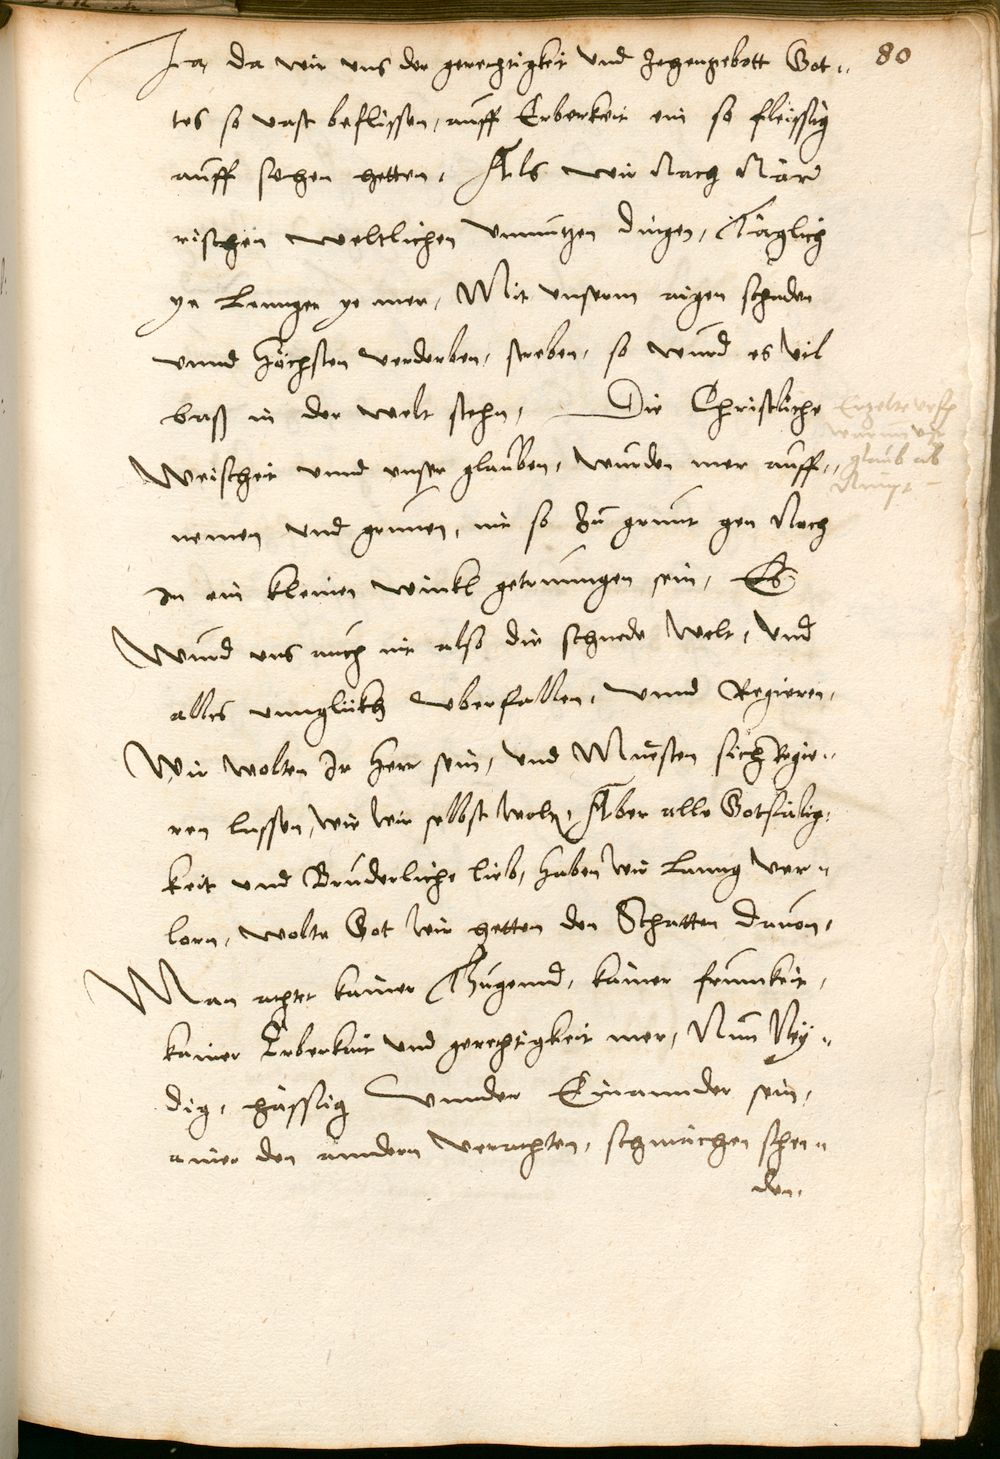 80
Ja, da wir uns der gerechtigkeit und zehengebott Got=
tes so vast beflissen, auff Erberkeit ein so fleissig
auff sehen hetten, Als wir Nach När
rischen weltlichen unnutzen dingen, Täglich
ye lennger ye mer, Mit unserm aigen schaden
unnd höchsten verderben, streben, so wurd es vil
baß in der welt stehn, Die Christliche
Weisheit unnd unser glauben, wurden mer auff=
nemen und grunen, nit so zu grunt gen Noch
In ein kleinen winkl getrunngen sein, Es
Wurd uns auch nit also die schnede Welt, Und
alles unnglükh uberfallen, unnd Regieren,
Wir wolten Ir Herr sein, und Muesten sich Regie=
ren lassen, wie wir selbst woln, Aber alle Gotsälig=
keit und Bruderliche lieb, haben wir lanng ver=
lorn, wolte Got wir hetten den Schatten davon,
Man achtet kainer Thugennd, kainer frumkeit,
kainer Erberkait und gerechtigkeit mer, Nun Ney=
dig, hässig unnder Einannder sein,
ainer den anndern verachten, schmächen schen=
den,
glaub ab